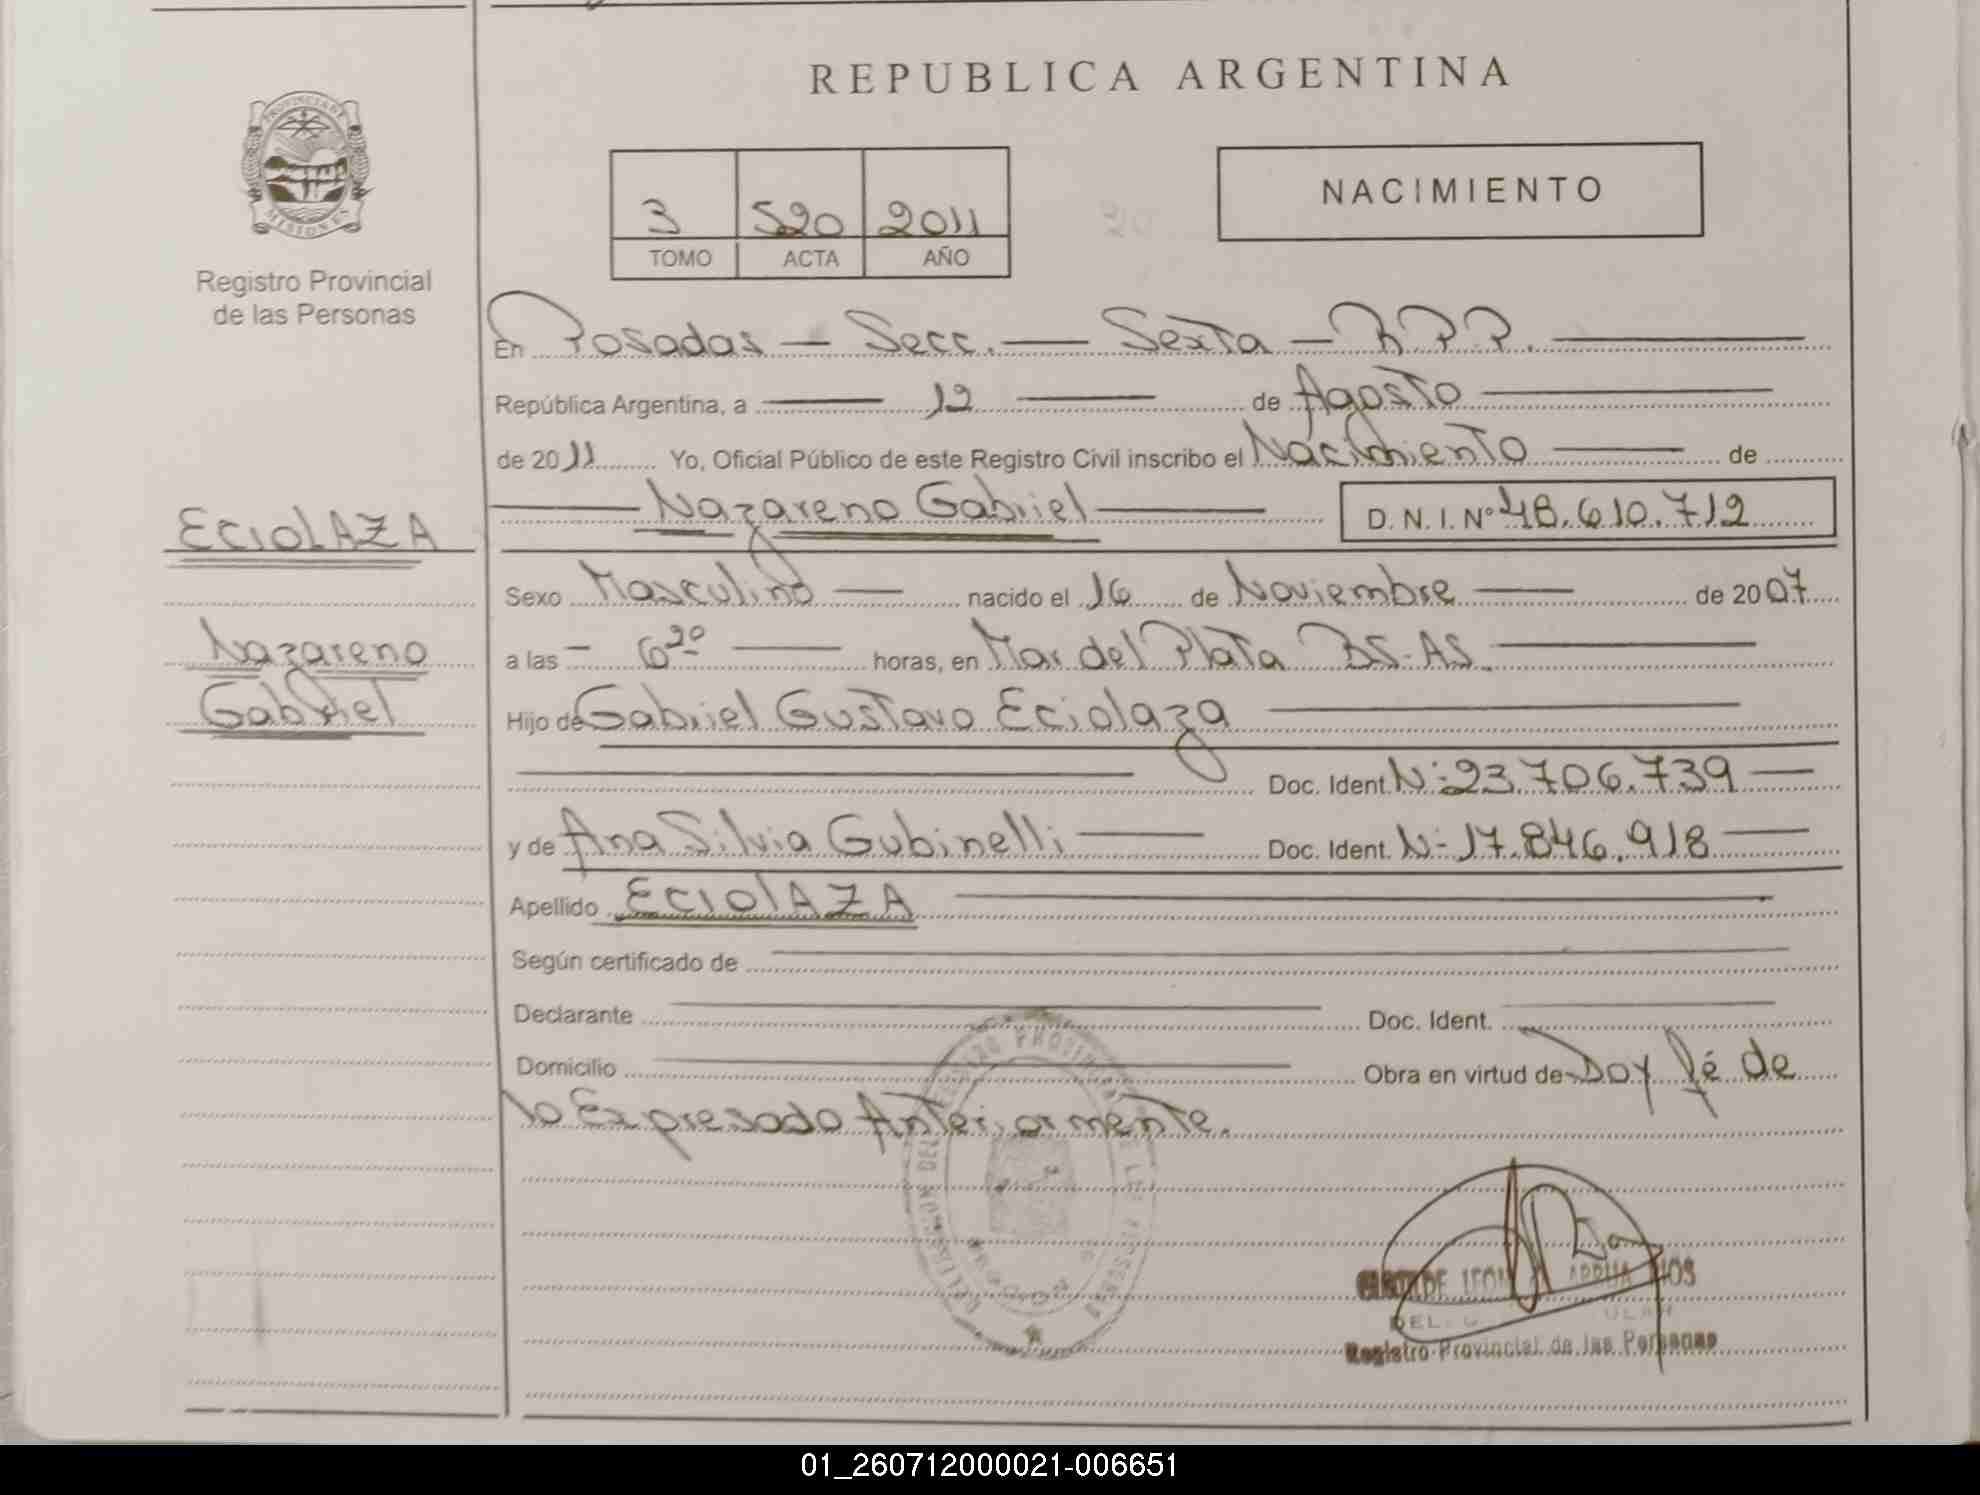 REPUBLICA ARGENTINA
PROVINCIA DE
MISIONES
Registro Provincial
de las Personas
3 520 2011
TOMO ACTA AÑO
NACIMIENTO
En Posadas — Secc. — Sexta — R.P.P.
República Argentina, a — 12 — de Agosto
de 2011 Yo, Oficial Público de este Registro Civil inscribo el Nacimiento — de
Nazareno Gabriel — D.N.I. Nº 48.610.712
ECIOLAZA
Sexo Masculino — nacido el 16 de Noviembre — de 2007
Nazareno
a las — 6 20 — horas, en Mar del Plata BS.AS.
Gabriel
Hijo de Gabriel Gustavo Eciolaza
Doc. Ident. N: 23.706.739 —
y de Ana Silvia Gubinelli — Doc. Ident. N- 17.846.918 —
Apellido ECIOLAZA
Según certificado de
Declarante Doc. Ident.
Domicilio Obra en virtud de Doy fé de
lo Expresado Anteriormente.
Registro Provincial de las Personas
01_260712000021-006651